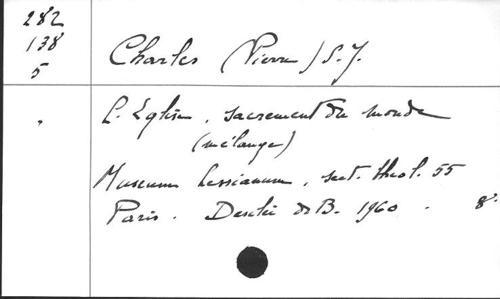 282
138
5
Charles (Pierre) S.J.
L'Eglise, sacrement du monde
(mélanges)
Museum Lessianum, sect. théol. 55
Paris. Desclée de B. 1960. 8°